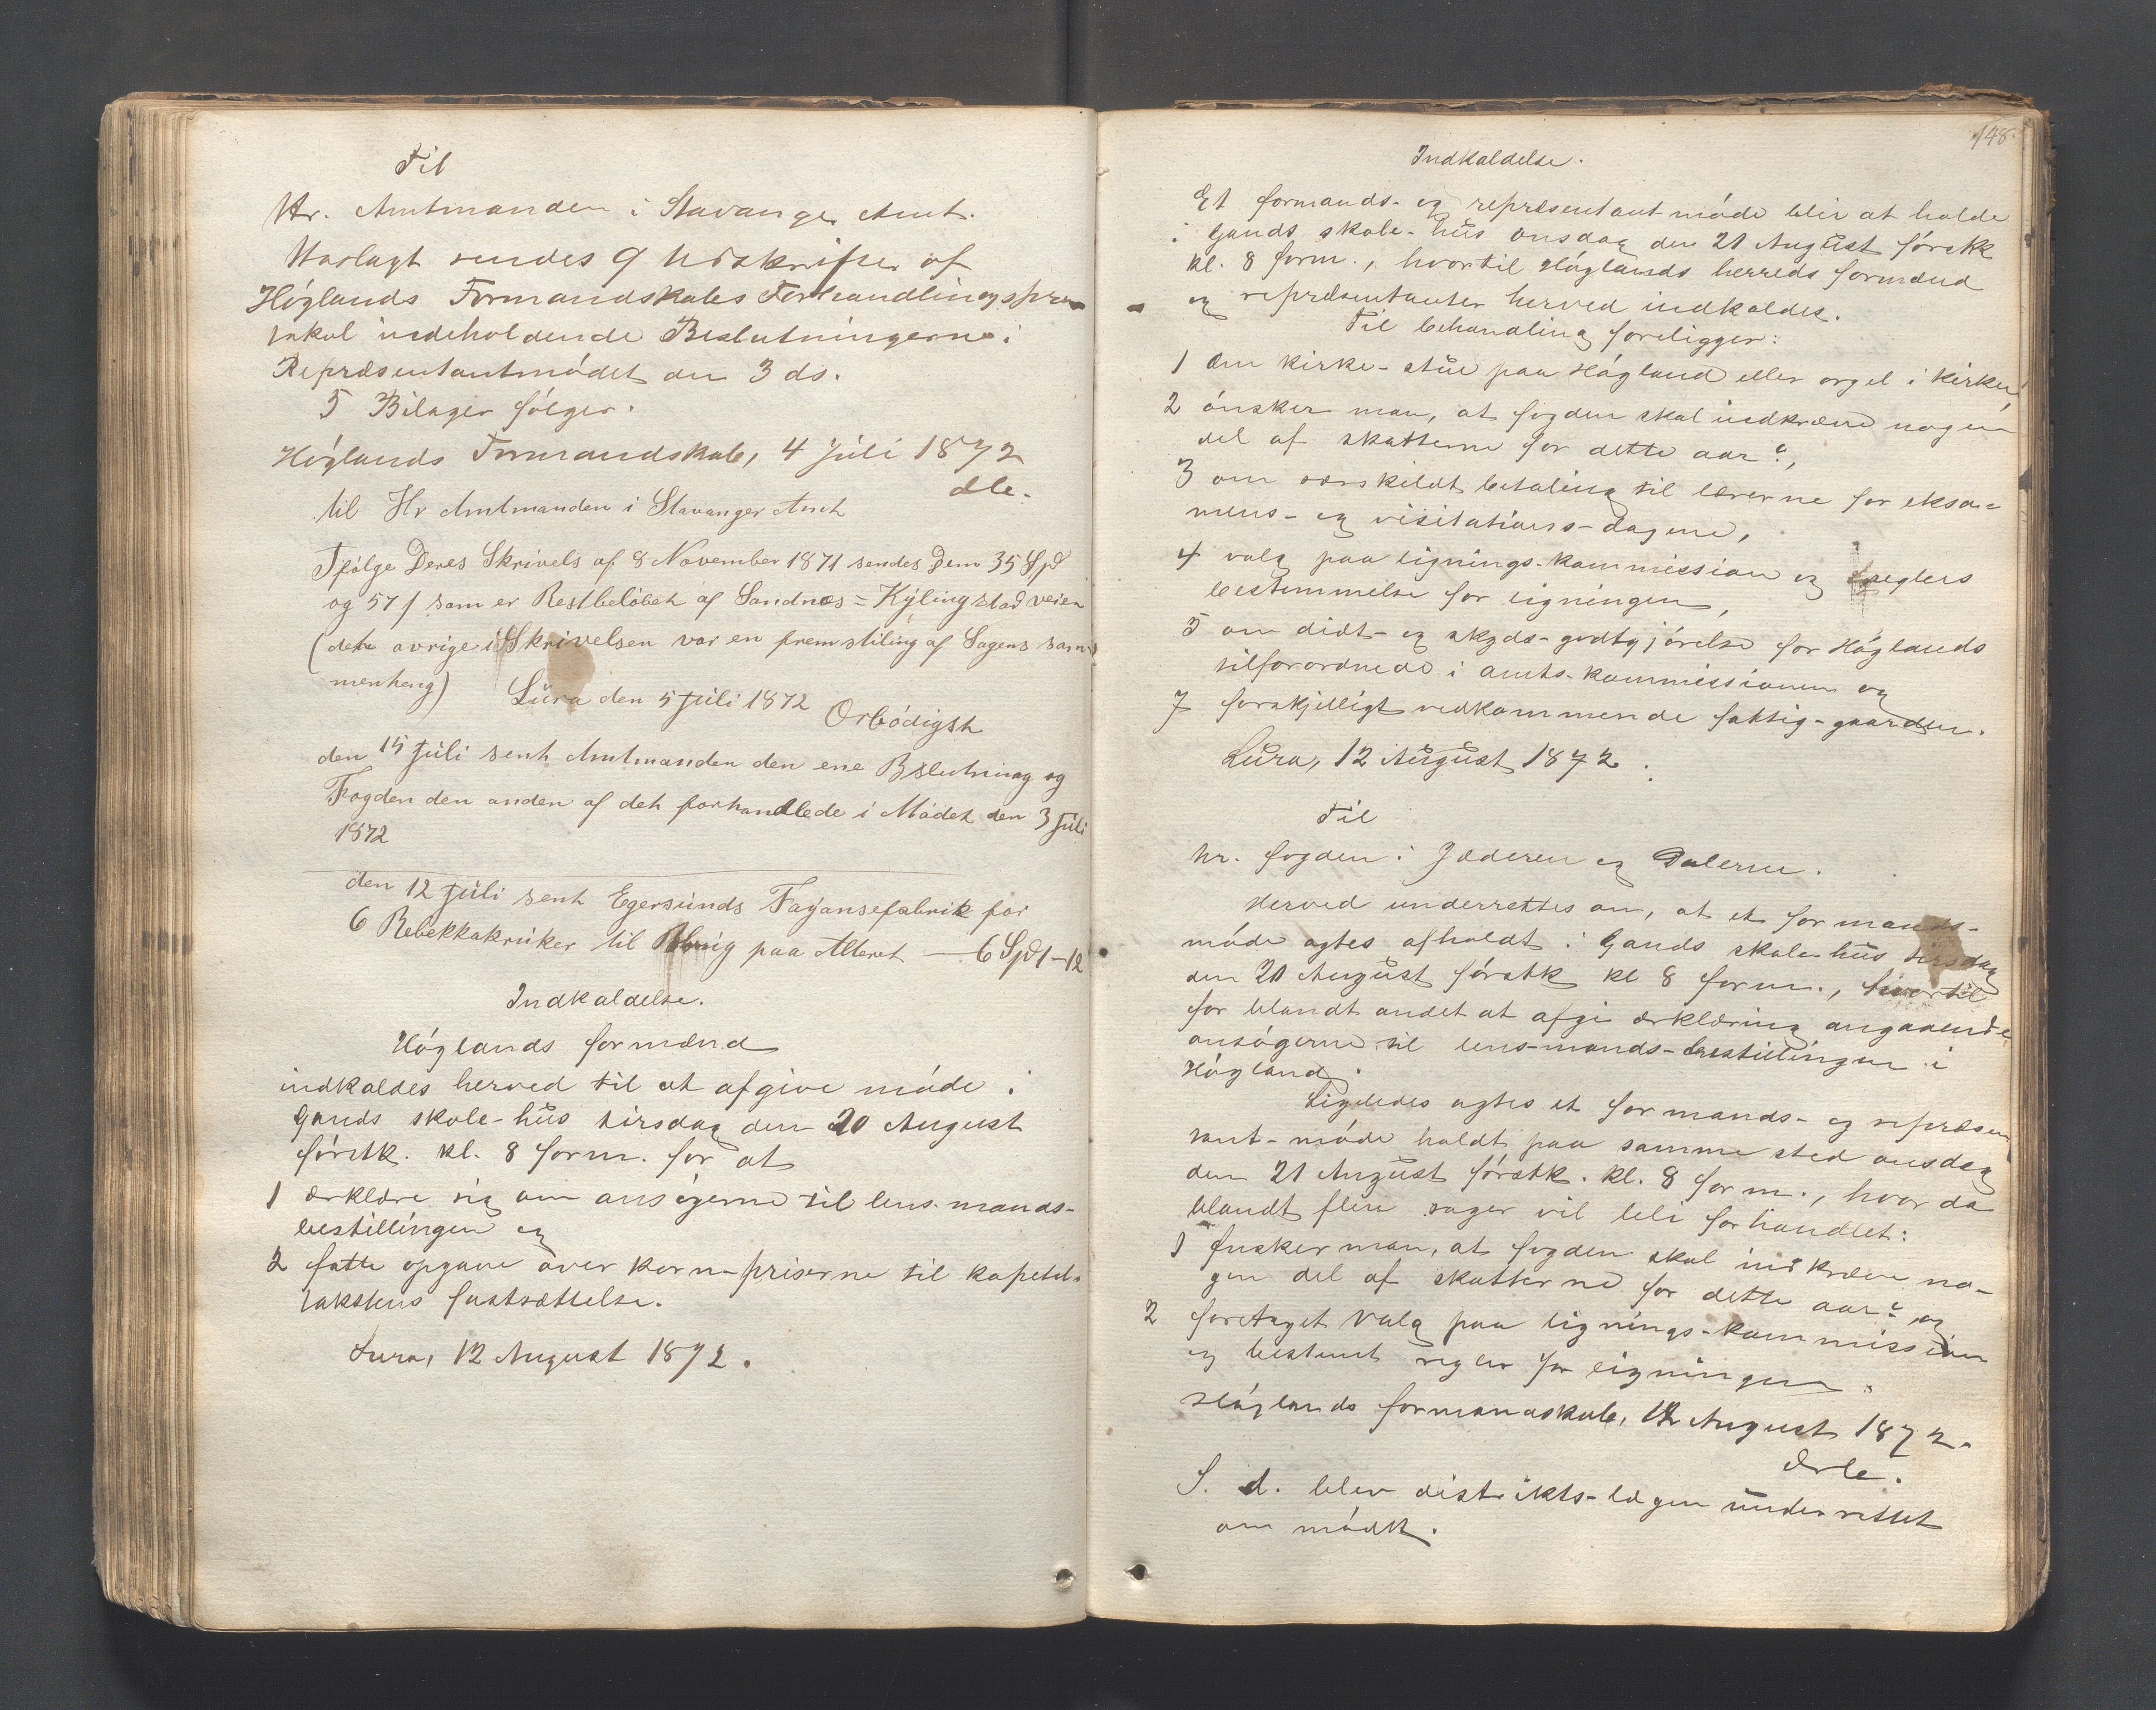 Til
Hr. Amtmanden i Stavanger Amt.
Vedlagt sendes 9 Udskrifter af
Höglands Formandskabs Forhandlingspro
tokol indeholdende Beslutningerne i
Repræsentantmödet den 3 ds.
5 Bilager fölger.
Höglands Formandskab, 4 Júli 1872
til Hr Amtmanden i Stavanger Amt
Ifölge Deres Skrivels af 8 November 1871 sendes Dem 35 Spd
og 57 s som er Restbelöbet af Sandnæs = Kÿlingstad veien
(dette øvrige i Skrivelsen var en fremstiling af Sagens sam
menheng)
Lŭra den 5 Júli 1872
Orbödigst
den 15 Júli sent Amtmanden den ene Bslutning og
Fogden den anden af det forhandlede i Mödet den 3 Júli
1872
den 12 Júli sent Egersŭnds Fayansefabrik for
6 Rebekkakrŭker til Brŭg paa Alteret — 6 Spd 1-12
Indkaldelse.
Höglands formænd
indkaldes herved til at afgive möde i
Gands skole-hŭs tirsdag den 20 August
förstk. kl. 8 form. for at
1 erklære sig om ansögerne til lens-mands-
bestillingen og
2 fatte opgave over korn-priserne til kapitel-
takstens fastsættelse.
Lura, 12 August 1872.
148.
Indkaldelse.
Et formands- og repræsentant möde blir at holde
i Gands skole-hŭs onsdag den 21 Augŭst förstk
kl. 8 form., hvortil Höglands herreds formænd
og repræsentanter herved indkaldes.
Til behandling foreligger:
1 om kirke-stŭe paa Högland eller orgel i kirken,
2 önsker man, at fogden skal indkræve nogen
del af skatterne for dette aar?,
3 om særskildt betaling til lærerne for eksa-
mens- og visitations-dagene,
4 valg paa lignings-kommission og reglers
bestemmelse for ligningen,
5 om diæt- og skyds-godtgjörelse for Höglands
tilforordnede i amts-kommissionen og
7 forskjelligt vedkommende fattig-gaarden.
Lŭra, 12 Augŭst 1872.
Til
hr. fogden i Jæderen og Dalerne.
Herved underrettes om, at et formands-
möde agtes afholdt i Gands skole-hŭs tirsdag
den 20 Augŭst förstk kl 8 form., hvortil
for blandt andet at afgi erklæring angaaende
ansögerne til lens-mands-bestillingen i
Högland.
Ligeledes agtes et formands- og repræsen
tant-möde holdt paa samme sted onsdag
den 21 Augŭst förstk. kl. 8 form., hvor da
blandt flere sager vil bli forhandlet:
1 önsker man, at fogden skal indkræve no-
gen del af skatterne for dette aar?, og
2 foretaget valg paa lignings-kommission
og bestemt regler for ligningen.
Höglands formandskab, 12 August 1872.
S. d. blev distrikts-lægen ŭnderrettet
om mödet.